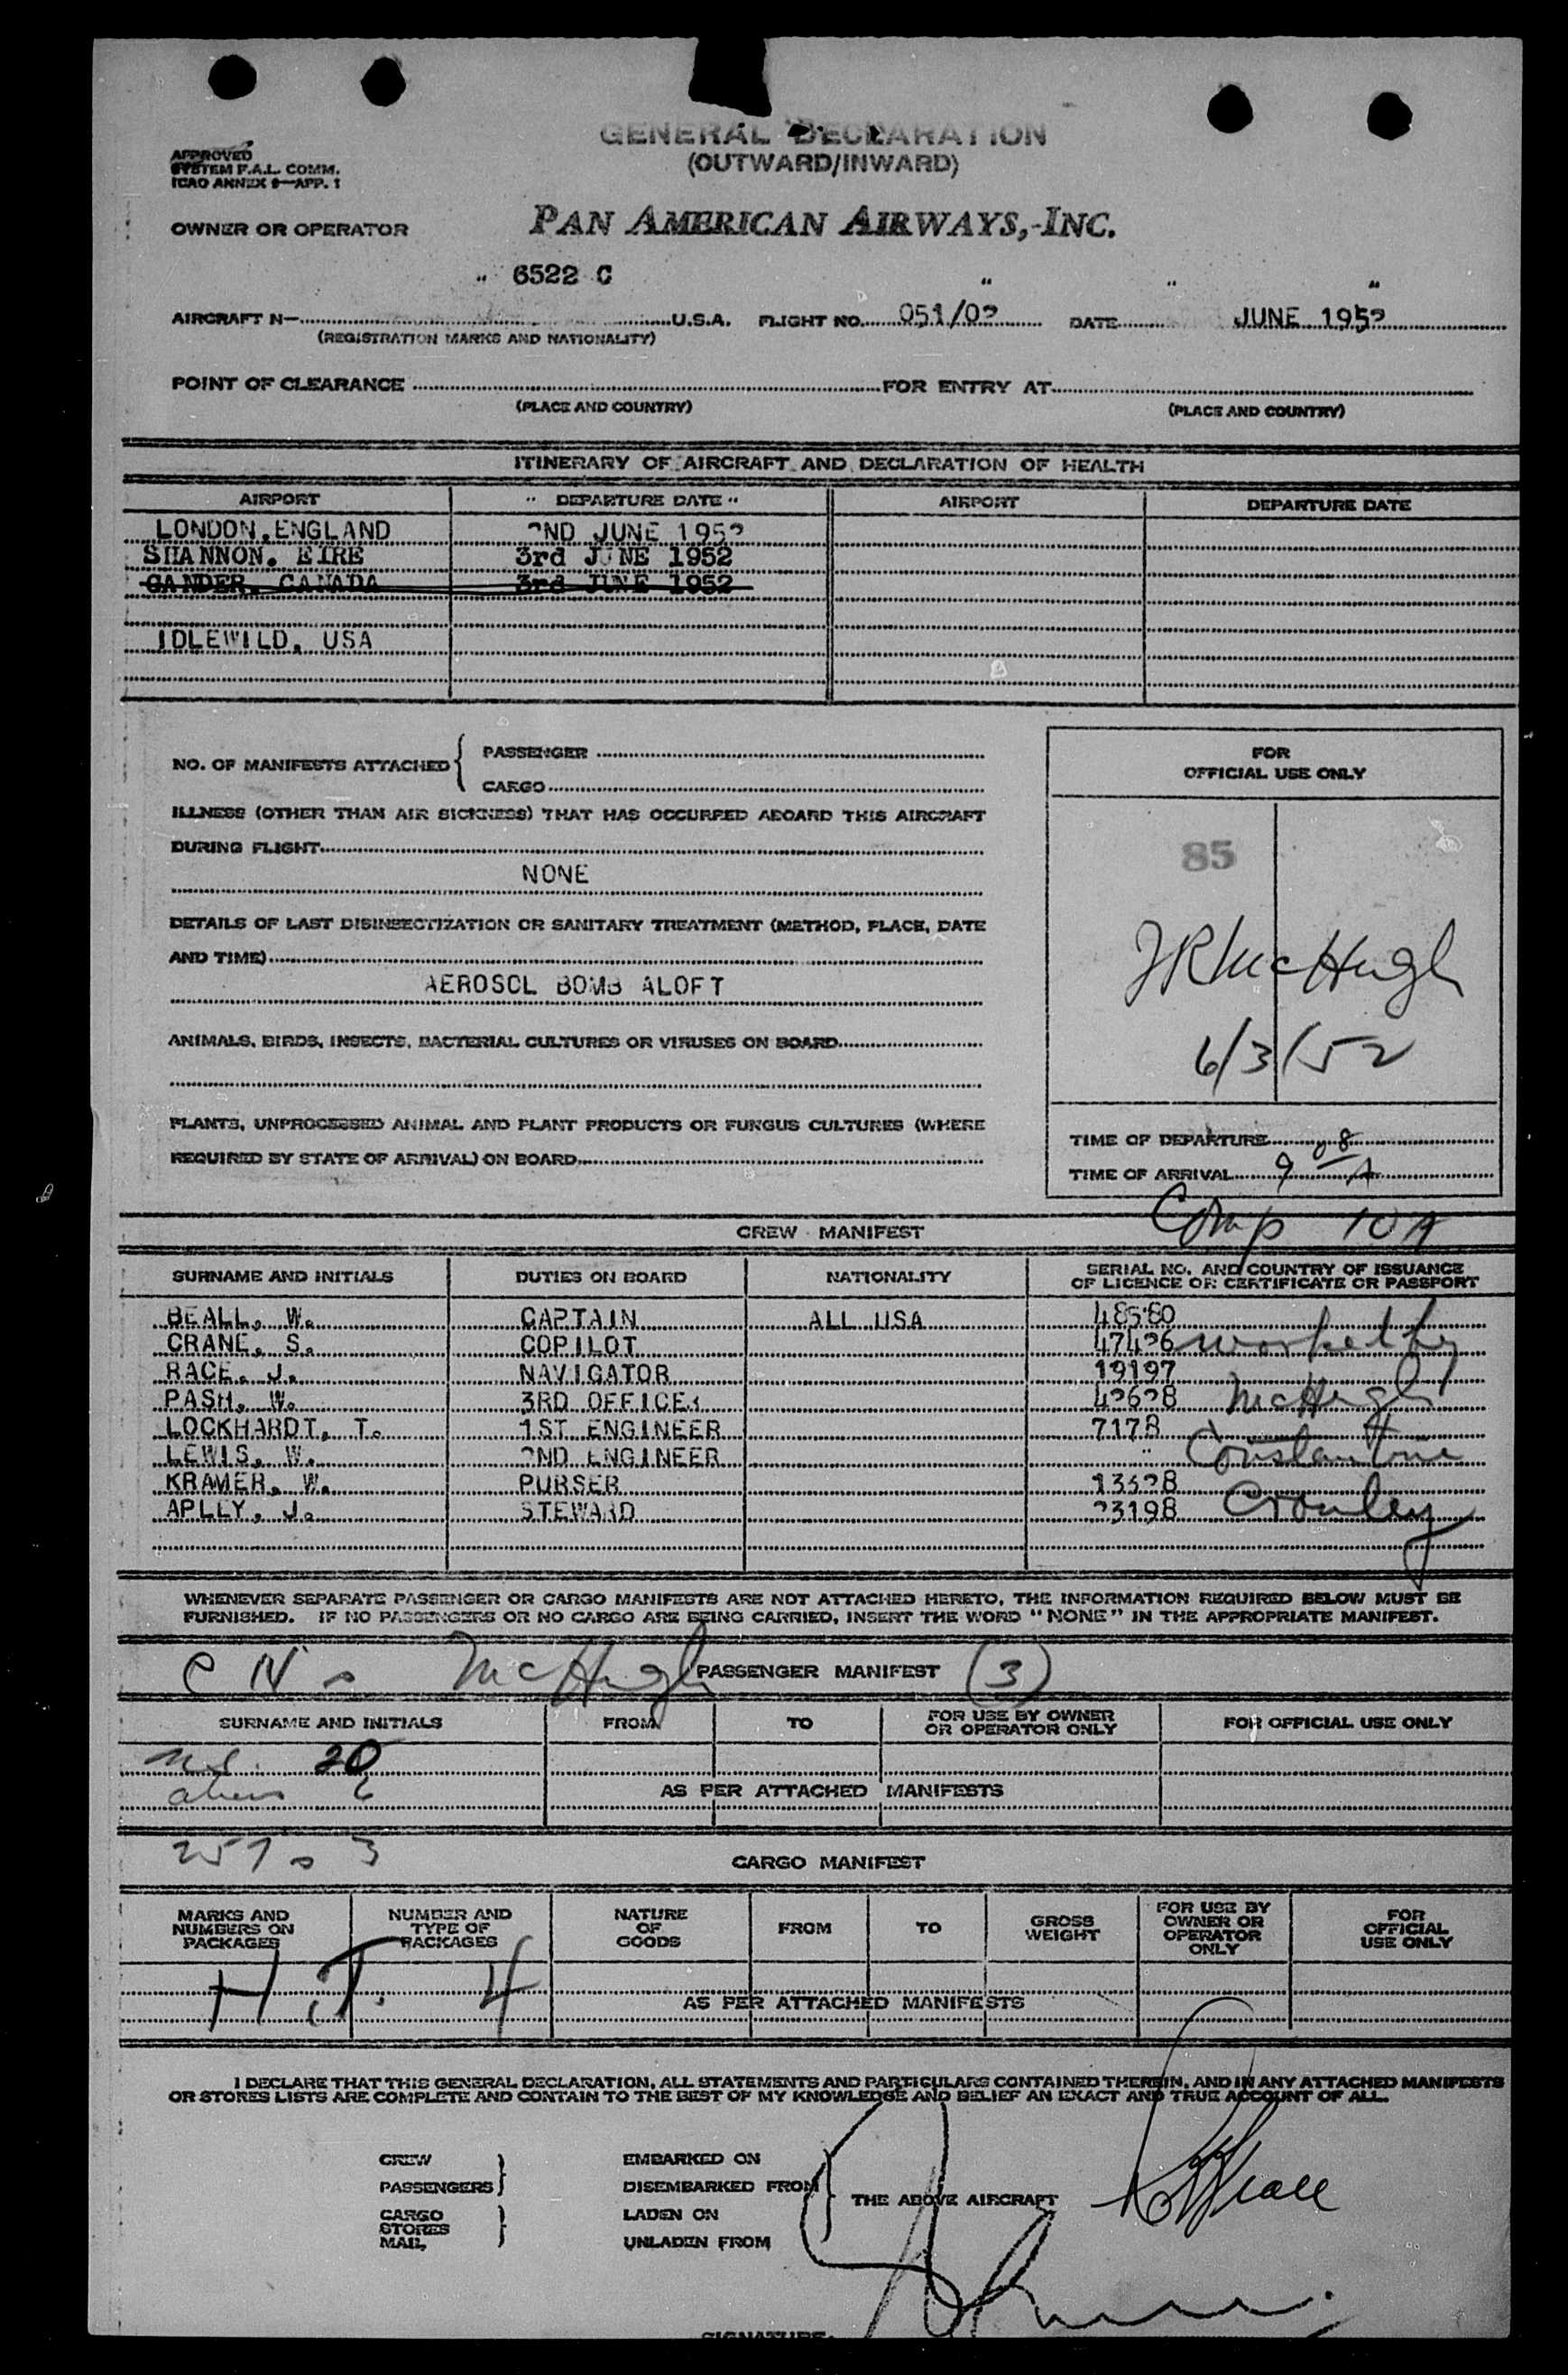 GENERAL DECLARATION
(OUTWARD/INWARD)
APPROVED
SYSTEM F.A.L. COMM.
ICAO ANNEX 9—APP. 1
OWNER OR OPERATOR PAN AMERICAN AIRWAYS, INC.
6522 C
AIRCRAFT N— U.S.A. FLIGHT NO. 051/02 DATE JUNE 1952
(REGISTRATION MARKS AND NATIONALITY)
POINT OF CLEARANCE FOR ENTRY AT
(PLACE AND COUNTRY) (PLACE AND COUNTRY)
ITINERARY OF AIRCRAFT AND DECLARATION OF HEALTH
AIRPORT " DEPARTURE DATE " AIRPORT DEPARTURE DATE
LONDON, ENGLAND 2ND JUNE 1952
SHANNON, EIRE 3rd JUNE 1952
GANDER, CANADA 3rd JUNE 1952
IDLEWILD, USA
NO. OF MANIFESTS ATTACHED { PASSENGER
CARGO
FOR
OFFICIAL USE ONLY
ILLNESS (OTHER THAN AIR SICKNESS) THAT HAS OCCURRED ABOARD THIS AIRCRAFT
DURING FLIGHT
NONE
85
DETAILS OF LAST DISINSECTIZATION OR SANITARY TREATMENT (METHOD, PLACE, DATE
AND TIME)
AEROSOL BOMB ALOFT
JR McHugh
6/3/52
ANIMALS, BIRDS, INSECTS, BACTERIAL CULTURES OR VIRUSES ON BOARD
PLANTS, UNPROCESSED ANIMAL AND PLANT PRODUCTS OR FUNGUS CULTURES (WHERE
REQUIRED BY STATE OF ARRIVAL) ON BOARD
TIME OF DEPARTURE
TIME OF ARRIVAL 9 08 A
Comp 10 A
CREW MANIFEST
SURNAME AND INITIALS DUTIES ON BOARD NATIONALITY SERIAL NO. AND COUNTRY OF ISSUANCE
OF LICENCE OR CERTIFICATE OR PASSPORT
BEALL, W. CAPTAIN ALL USA 48580
CRANE, S. COPILOT 47426 worked by
RACE, J. NAVIGATOR 19197
PASH, W. 3RD OFFICER 42628 McHugh
LOCKHARDT, T. 1ST ENGINEER 7178
LEWIS, W. 2ND ENGINEER Constantine
KRAMER, W. PURSER 13328
APLLY, J. STEWARD 23198 Crowley
WHENEVER SEPARATE PASSENGER OR CARGO MANIFESTS ARE NOT ATTACHED HERETO, THE INFORMATION REQUIRED BELOW MUST BE
FURNISHED. IF NO PASSENGERS OR NO CARGO ARE BEING CARRIED, INSERT THE WORD "NONE" IN THE APPROPRIATE MANIFEST.
McHugh PASSENGER MANIFEST (3)
SURNAME AND INITIALS FROM TO FOR USE BY OWNER
OR OPERATOR ONLY FOR OFFICIAL USE ONLY
20
aliens 6
AS PER ATTACHED MANIFESTS
257 3
CARGO MANIFEST
MARKS AND
NUMBERS ON
PACKAGES NUMBER AND
TYPE OF
PACKAGES NATURE
OF
GOODS FROM TO GROSS
WEIGHT FOR USE BY
OWNER OR
OPERATOR
ONLY FOR
OFFICIAL
USE ONLY
H.T. 4
AS PER ATTACHED MANIFESTS
I DECLARE THAT THIS GENERAL DECLARATION, ALL STATEMENTS AND PARTICULARS CONTAINED THEREIN, AND IN ANY ATTACHED MANIFESTS
OR STORES LISTS ARE COMPLETE AND CONTAIN TO THE BEST OF MY KNOWLEDGE AND BELIEF AN EXACT AND TRUE ACCOUNT OF ALL.
CREW EMBARKED ON
PASSENGERS } DISEMBARKED FROM
THE ABOVE AIRCRAFT
CARGO LADEN ON
STORES }
MAIL UNLADEN FROM
SIGNATURE